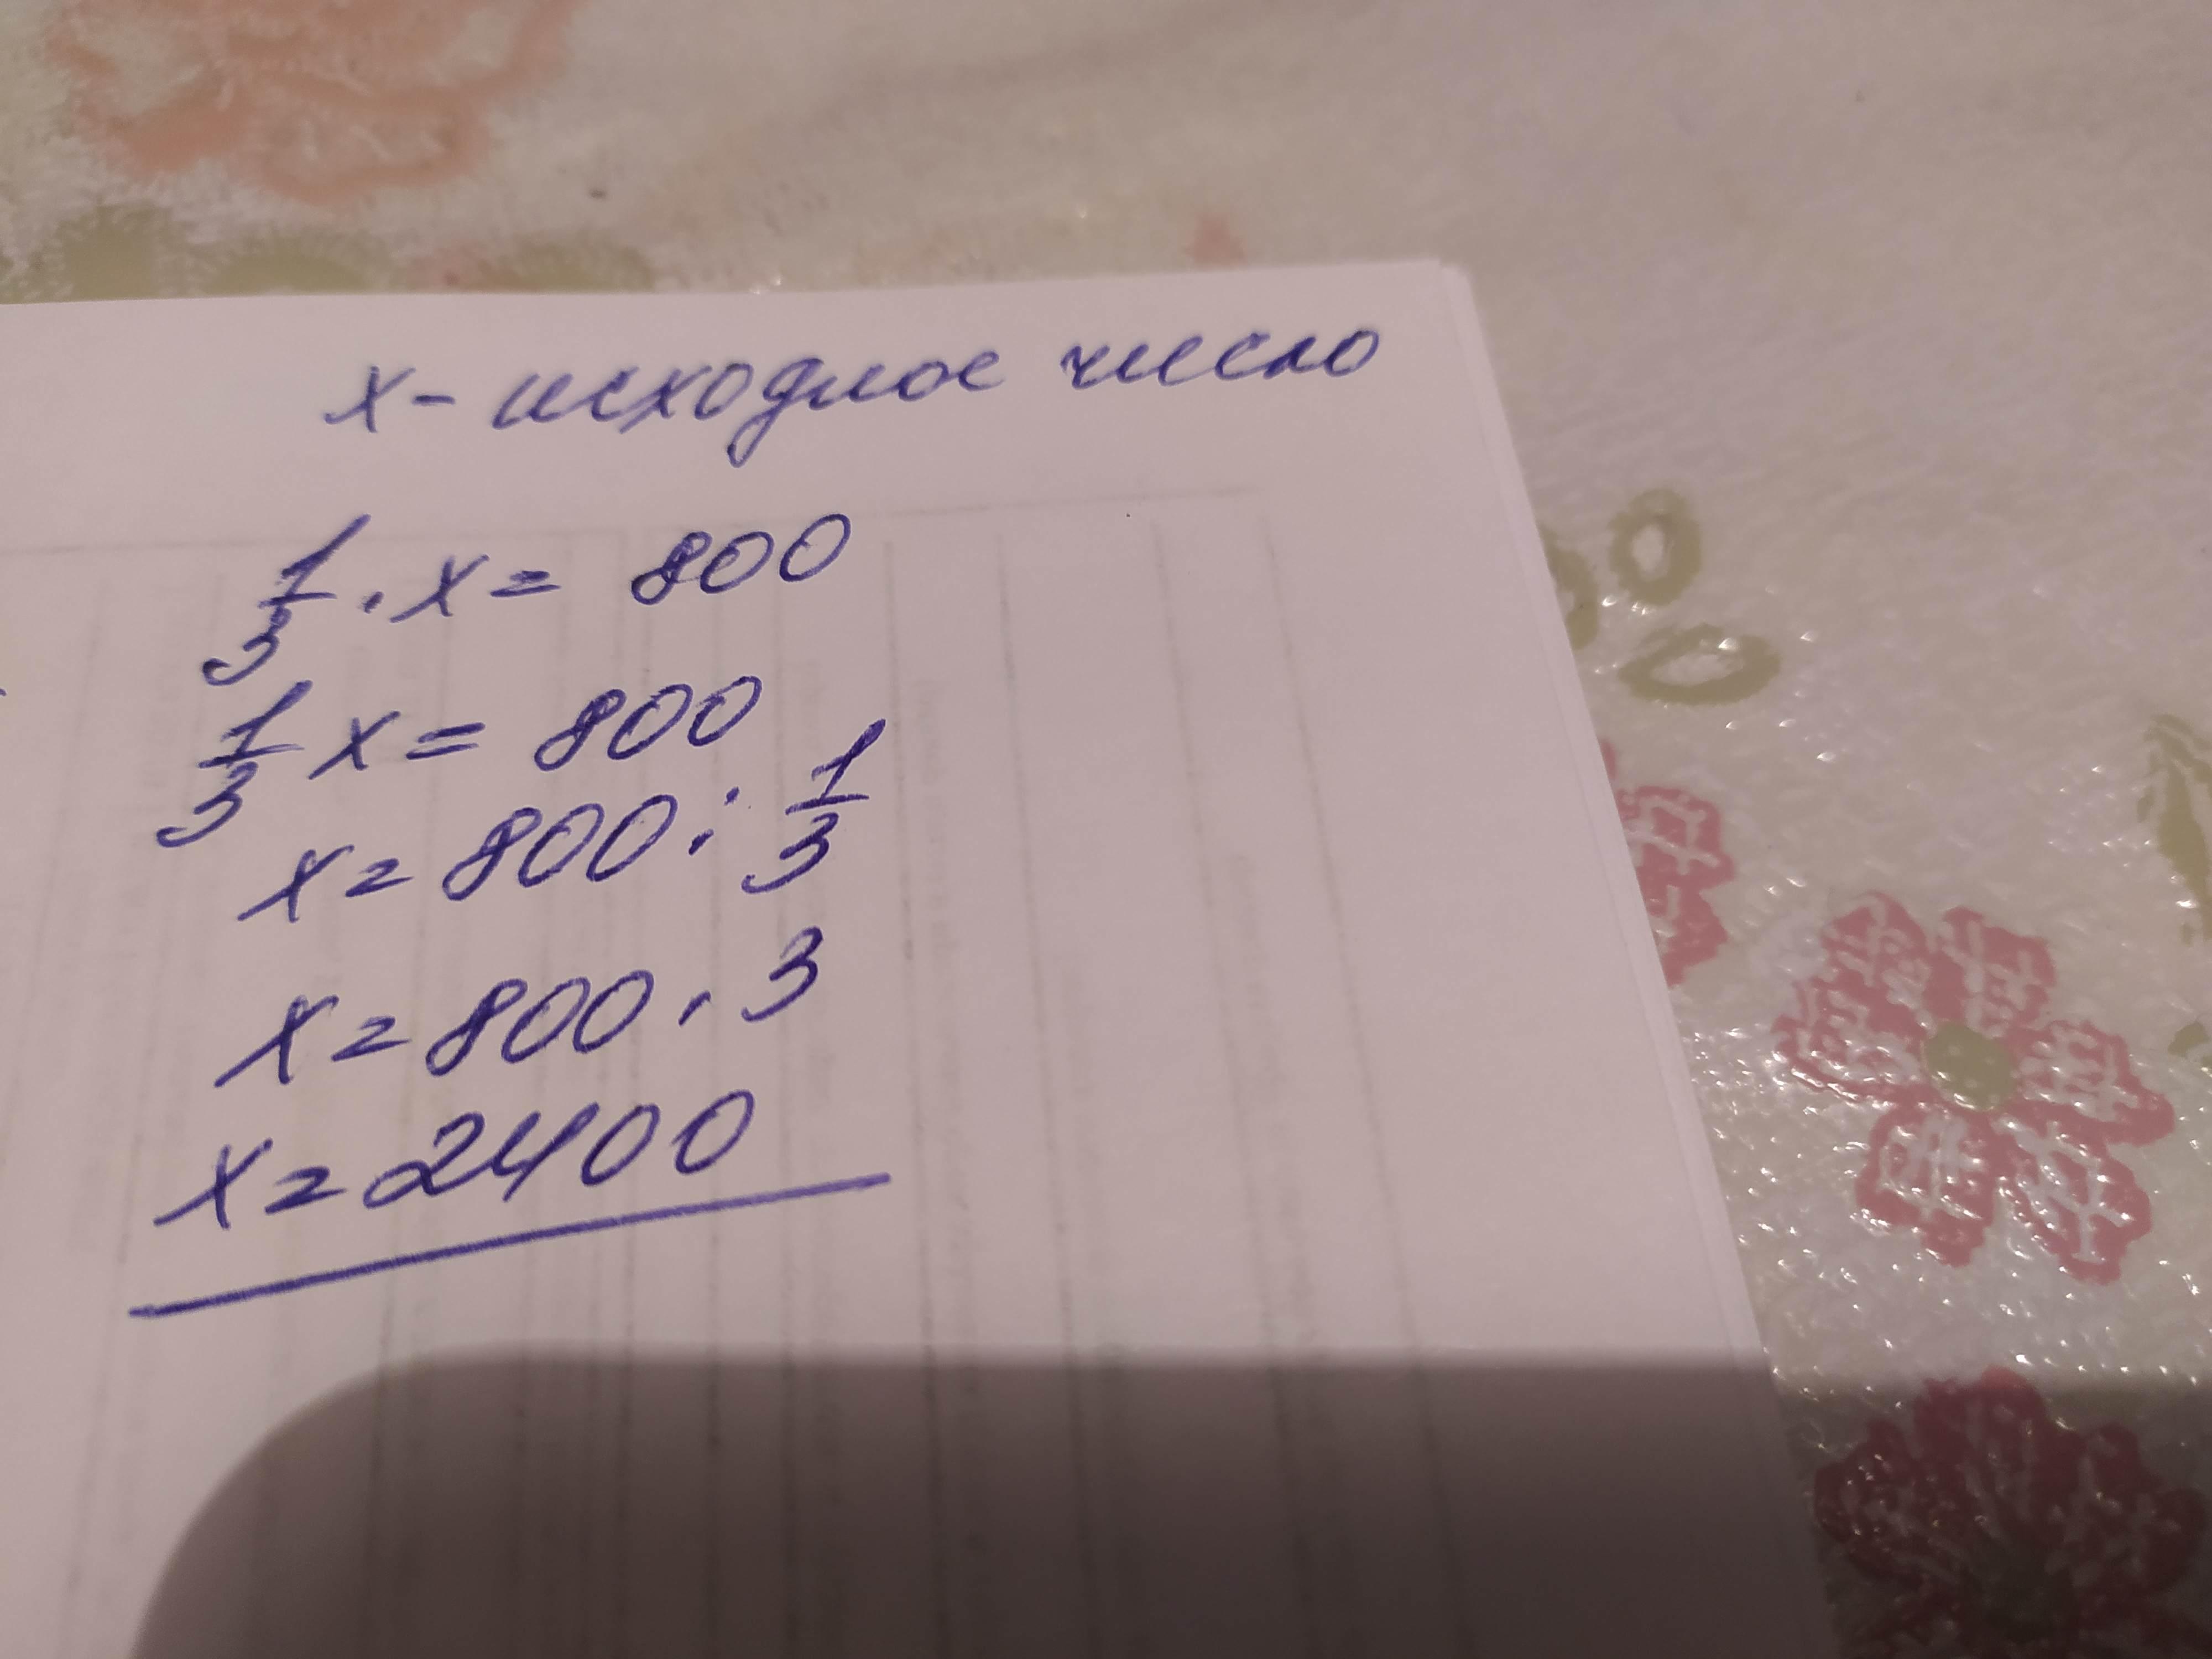 x - исходное число
1/3 · x = 800
1/3 x = 800
x = 800 : 1/3
x = 800 · 3
x = 2400